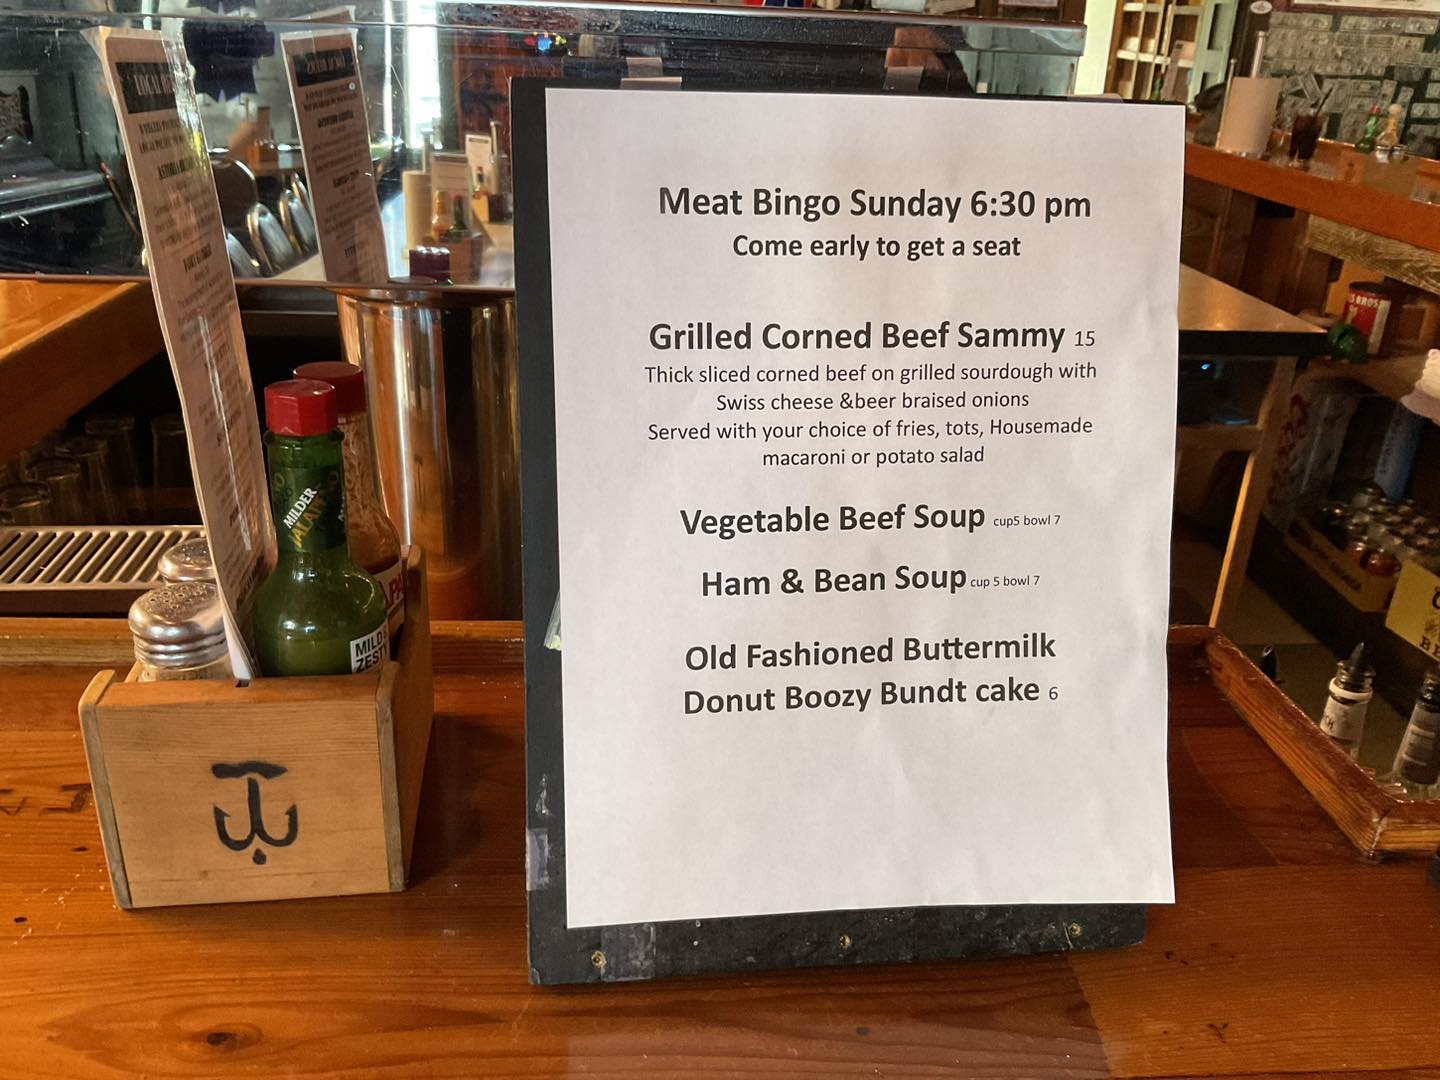 Meat Bingo Sunday 6:30 pm
Come early to get a seat
Grilled Corned Beef Sammy 15
Thick sliced corned beef on grilled sourdough with
Swiss cheese &beer braised onions
Served with your choice of fries, tots, Housemade
macaroni or potato salad
Vegetable Beef Soup cup5 bowl 7
Ham & Bean Soup cup 5 bowl 7
Old Fashioned Buttermilk
Donut Boozy Bundt cake 6
LOCAL
MILDER
MILD &
ZESTY
BROS